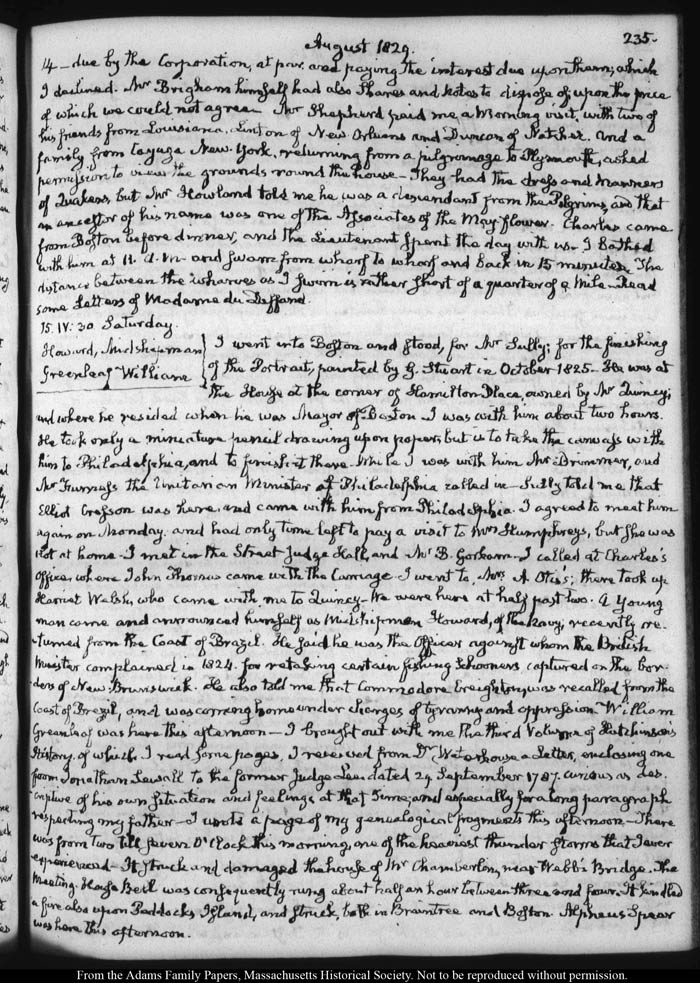 August 1829.
235.
14 - due by the Corporation, at par and paying the interest due upon them; which
I declined. Mr Brigham himself had also Shares and Notes to dispose of, upon the price
of which we could not agree. Mr Shepherd paid me a Morning visit, with two of
his friends from Louisiana, Linton of New Orleans and Duncan of Natchez. And a
family from Cayuga New-York, returning from a pilgrimage to Plymouth, asked
permission to view the grounds round the house - They had the dress and manners
of Quakers, but Mr Howland told me he was a descendant from the Pilgrims, and that
an ancestor of his name was one of the Associates of the May-flower. Charles came
from Boston before dinner, and the Lieutenant spent the day with us. I bathed
with him at 11. A.M. and swam from wharf to wharf and back in 15 minutes. The
distance between the wharves as I swim is rather short of a quarter of a Mile. Read
some Letters of Madame du Deffand.
15. IV: 30 Saturday.
Howard, Midshipman
Greenleaf William
I went into Boston and stood, for Mr Sully; for the finishing
of the Portrait, painted by G. Stuart in October 1825. He was at
the House at the corner of Hamilton Place, owned by Mr Quincy;
and where he resided when he was Mayor of Boston. I was with him about two hours.
He took only a miniature pencil drawing upon paper; but is to take the canvass with
him to Philadelphia, and to finish it there. While I was with him Mr Brimmer, and
Mr Furness the Unitarian Minister at Philadelphia called in. Sully told me that
Elliot Cresson was here, and came with him from Philadelphia. I agreed to meet him
again on Monday. and had only time left to pay a visit to Mrs Humphreys, but she was
not at home. I met in the Street Judge Hall, and Mr B. Gorham. I called at Charles's
Office, where John Thomas came with the Carriage. I went to Mrs. A Otis's; there took up
Harriet Welsh, who came with me to Quincy. We were here at half past two. A Young
man came and announced himself as Midshipman Howard, of the Navy, recently re-
turned from the Coast of Brazil. He said he was the Officer against whom the British
Minister complained in 1824. for retaking certain fishing Schooners captured on the bor-
ders of New-Brunswick. He also told me that Commodore Creighton was recalled from the
Coast of Brazil, and was coming home under charges of tyranny and oppression. William
Greenleaf was here this afternoon - I brought out with me the third Volume of Hutchinson's
History, of which I read some pages. I received from Dr Waterhouse a Letter, enclosing one
from Jonathan Sewall to the former Judge Lee, dated 29 September 1787. curious as des-
criptive of his own situation and feelings at that time, and especially for a long paragraph
respecting my father - I wrote a page of my genealogical fragments this afternoon - There
was from two till seven O'Clock this morning, one of the heaviest thunder storms that I ever
experienced - It struck and damaged the house of Mr Chamberlon, near Webb's Bridge. The
Meeting-House Bell was consequently rung about half an hour between three and four. It kindled
a fire also upon Paddocks Island, and struck, both in Braintree and Boston. Alpheus Spear
was here this afternoon.
From the Adams Family Papers, Massachusetts Historical Society. Not to be reproduced without permission.